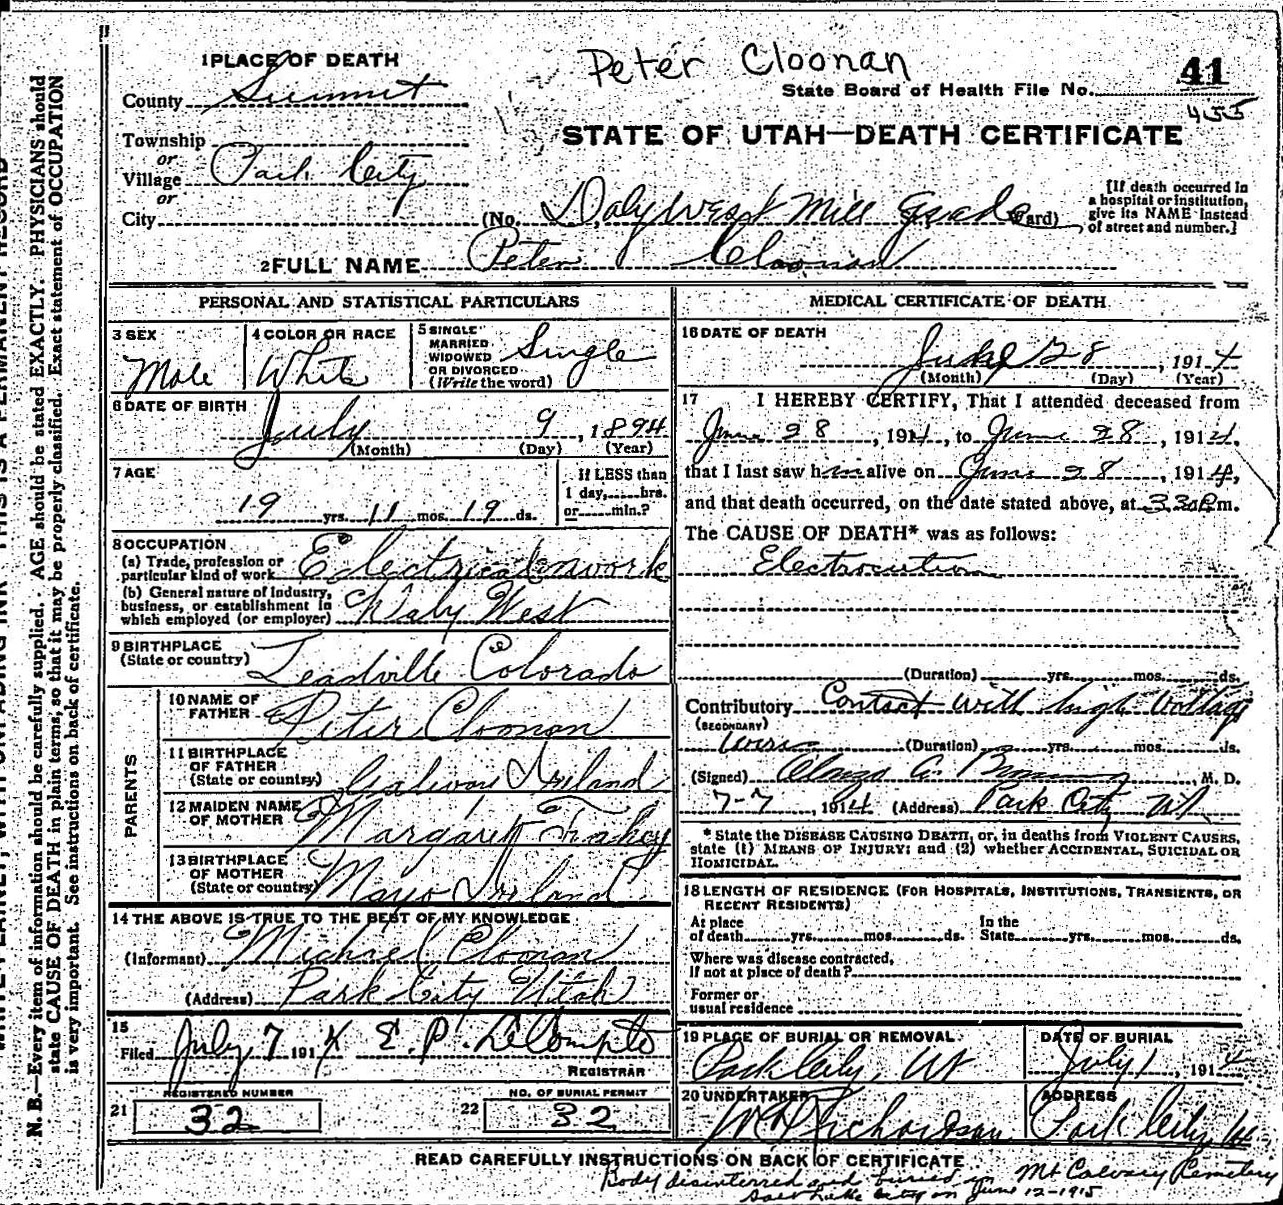 Peter Cloonan
41
State Board of Health File No.
455
STATE OF UTAH—DEATH CERTIFICATE
1 PLACE OF DEATH
County Summit
Township
or
Village Park City
or
City
(No. Daly West Mill Grade Ward)
[If death occurred in
a hospital or institution,
give its NAME instead
of street and number.]
2 FULL NAME Peter Cloonan
PERSONAL AND STATISTICAL PARTICULARS
3 SEX
Male
4 COLOR OR RACE
White
5 SINGLE
MARRIED
WIDOWED
OR DIVORCED
(Write the word)
Single
6 DATE OF BIRTH
July 9, 1894
(Month) (Day) (Year)
7 AGE
19 yrs. 11 mos. 19 ds.
If LESS than
1 day, hrs.
or min.?
8 OCCUPATION
(a) Trade, profession or
particular kind of work Electrical work
(b) General nature of Industry,
business, or establishment in
which employed (or employer) Daly West
9 BIRTHPLACE
(State or country) Leadville Colorado
PARENTS
10 NAME OF
FATHER Peter Cloonan
11 BIRTHPLACE
OF FATHER
(State or country) Galway Ireland
12 MAIDEN NAME
OF MOTHER Margarett Fahey
13 BIRTHPLACE
OF MOTHER
(State or country) Mayo Ireland
14 THE ABOVE IS TRUE TO THE BEST OF MY KNOWLEDGE
(Informant) Michael Cloonan
(Address) Park City Utah
15
Filed July 7 1914 E. P. LeCompte
REGISTRAR
REGISTERED NUMBER
21 32
NO. OF BURIAL PERMIT
22 32
MEDICAL CERTIFICATE OF DEATH
16 DATE OF DEATH
June 28, 1914
(Month) (Day) (Year)
17 I HEREBY CERTIFY, That I attended deceased from
June 28, 1914, to June 28, 1914,
that I last saw him alive on June 28, 1914,
and that death occurred, on the date stated above, at 3.30 P m.
The CAUSE OF DEATH* was as follows:
Electrocution
(Duration) yrs. mos. ds.
Contributory Contact with high voltage
(SECONDARY)
wires (Duration) yrs. mos. ds.
(Signed) M. D.
7-7, 1914 (Address) Park City Ut
* State the DISEASE CAUSING DEATH, or, in deaths from VIOLENT CAUSES,
state (1) MEANS OF INJURY; and (2) whether ACCIDENTAL, SUICIDAL OR
HOMICIDAL.
18 LENGTH OF RESIDENCE (FOR HOSPITALS, INSTITUTIONS, TRANSIENTS, OR
RECENT RESIDENTS)
At place
of death yrs. mos. ds.
In the
State yrs. mos. ds.
Where was disease contracted,
if not at place of death?
Former or
usual residence
19 PLACE OF BURIAL OR REMOVAL
Park City, Ut
DATE OF BURIAL
July 1, 1914
20 UNDERTAKER
Richardson
ADDRESS
Park City, Ut
READ CAREFULLY INSTRUCTIONS ON BACK OF CERTIFICATE
Body disinterred and buried in Mt Calvary Cemetery
Salt Lake City on June 12-1915
N. B.—Every item of information should be carefully supplied. AGE should be stated EXACTLY. PHYSICIANS should
state CAUSE OF DEATH in plain terms, so that it may be properly classified. Exact statement of OCCUPATION
is very important. See instructions on back of certificate.